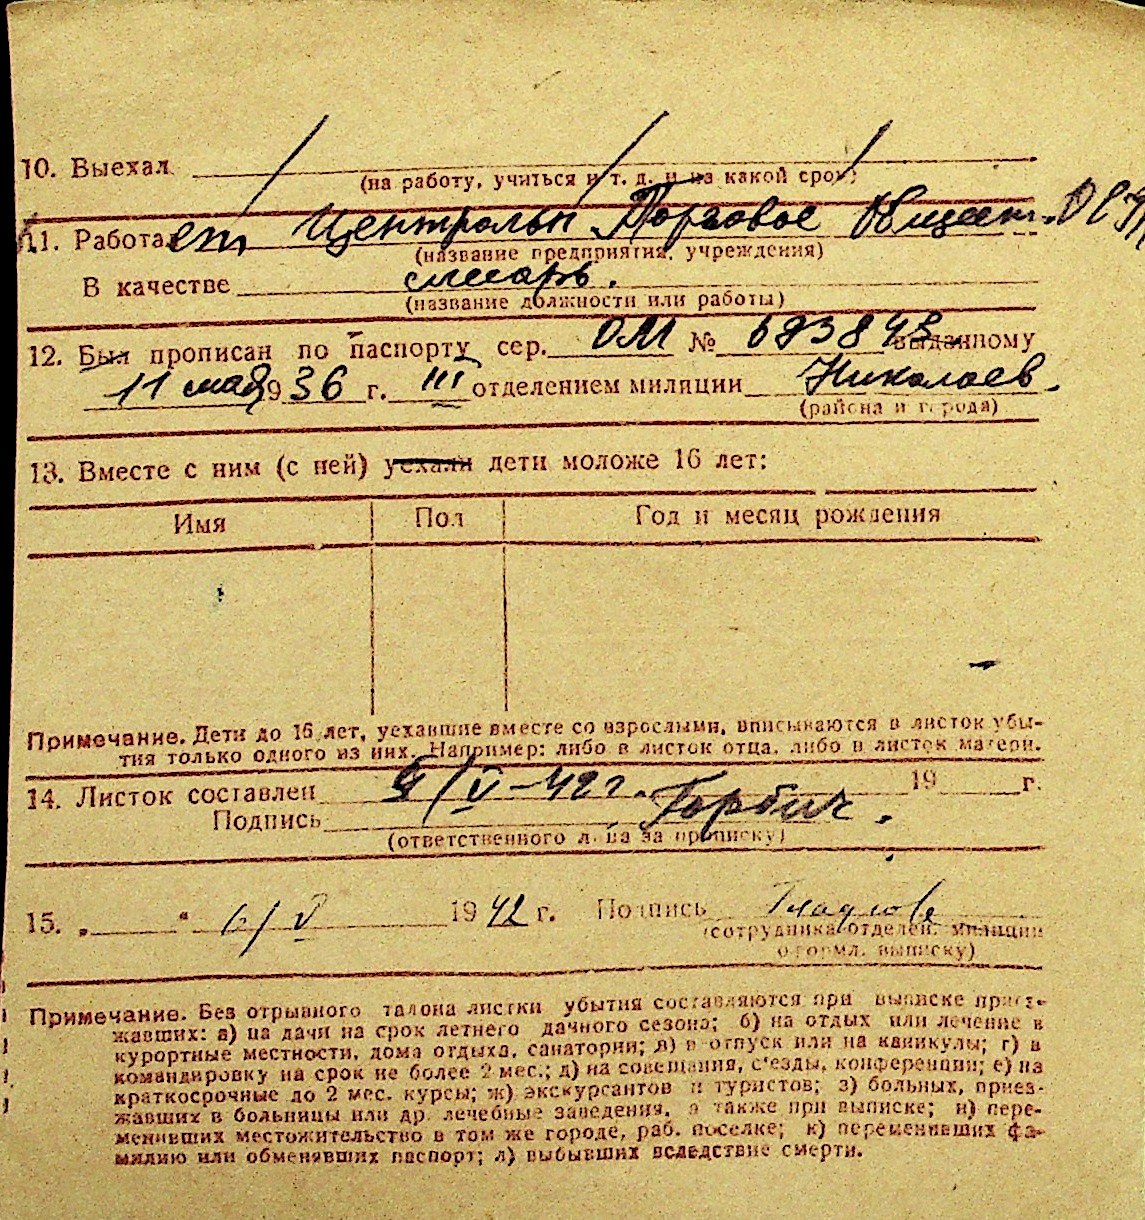 10. Выехал
(на работу, учиться и т. д. и на какой срок)
11. Работает Центральн Торговое Общест.
(название предприятия, учреждения)
В качестве слесарь.
(название должности или работы)
12. Был прописан по паспорту сер. ОМ № 693848 выданному
11 мая 1936 г. III отделением милиции Николаев.
(района и города)
13. Вместе с ним (с ней) уехали дети моложе 16 лет:
Имя Пол Год и месяц рождения
Примечание. Дети до 16 лет, уехавшие вместе со взрослыми, вписываются в листок убы-
тия только одного из них. Например: либо в листок отца, либо в листок матери.
14. Листок составлен /V-42г. 19 г.
Подпись Горбич.
(ответственного лица за прописку)
15. „ “ 6/V 1942 г. Подпись
(сотрудника отделен. милиции
оформл. выписку)
Примечание. Без отрывного талона листки убытия составляются при выписке приез-
жавших: а) на дачи на срок летнего дачного сезона; б) на отдых или лечение в
курортные местности, дома отдыха, санатории; в) в отпуск или на каникулы; г) в
командировку на срок не более 2 мес.; д) на совещания, с'езды, конференции; е) на
краткосрочные до 2 мес. курсы; ж) экскурсантов и туристов; з) больных, приез-
жавших в больницы или др. лечебные заведения, а также при выписке; и) пере-
менивших местожительство в том же городе, раб. поселке; к) переменивших фа-
милию или обменявших паспорт; л) выбывших вследствие смерти.